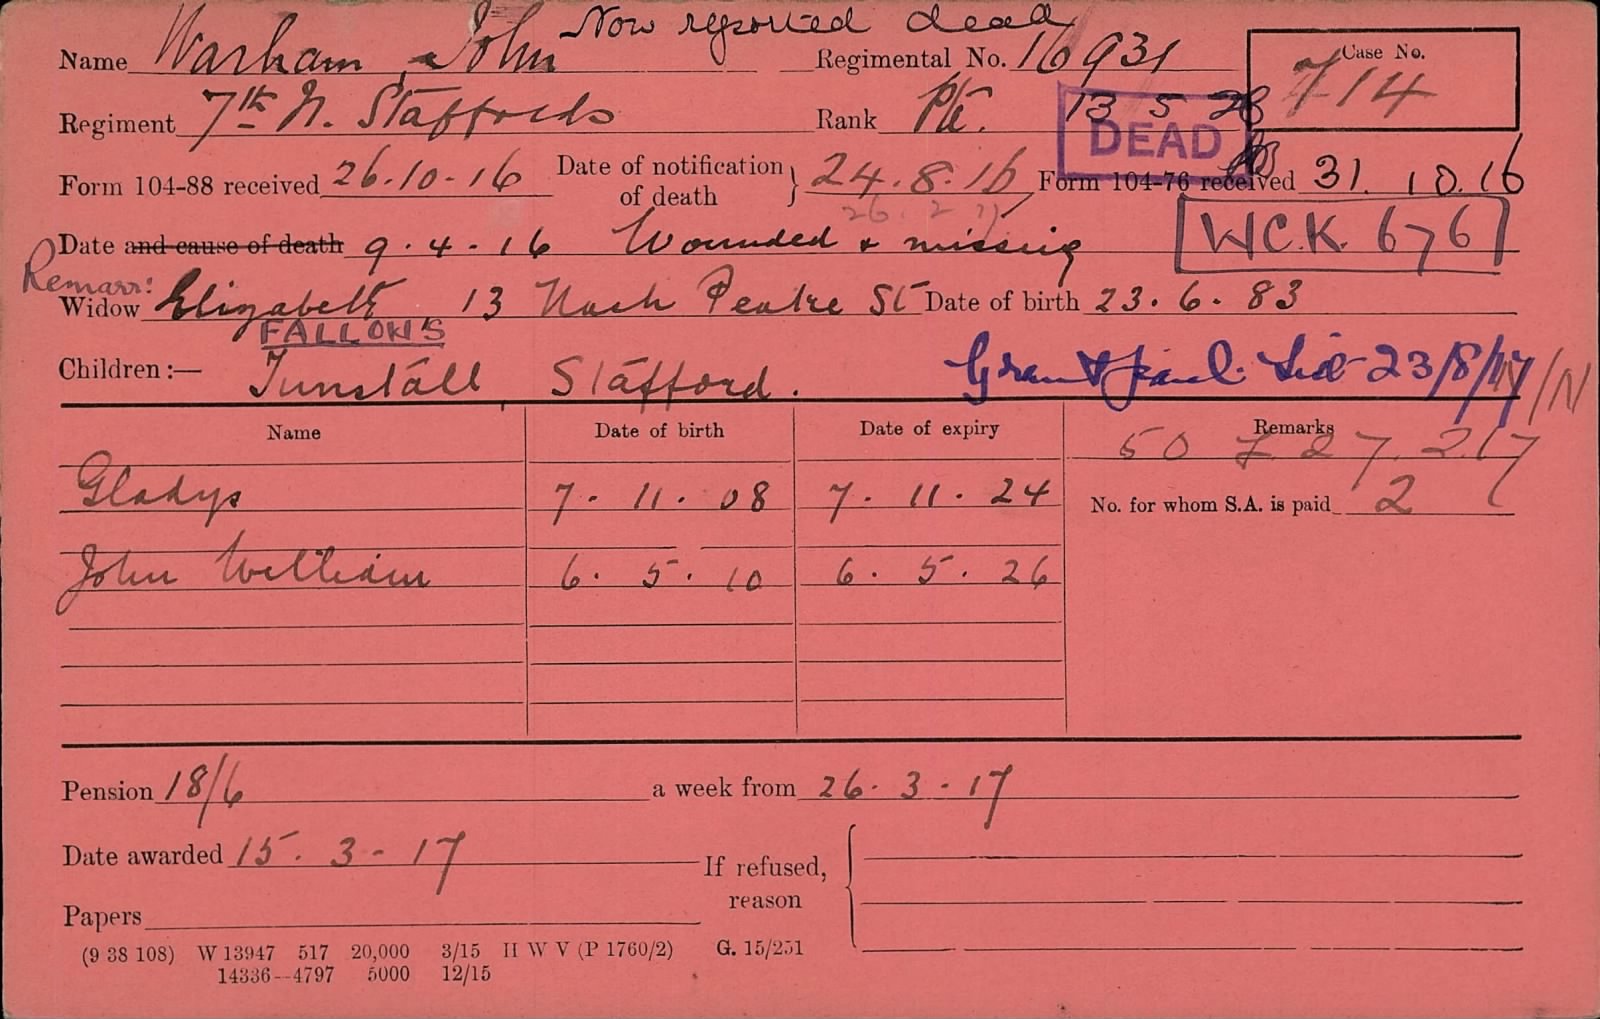 Now reported dead
Name Warham John Regimental No. 16931 Case No. 714
Regiment 7th N. Staffords Rank Pte. 13 5 28
DEAD
Form 104-88 received 26.10.16 Date of notification of death } 24.8.16 Form 104-76 received 31.10.16
26.2.17
Date and cause of death 9.4.16 Wounded & missing WCK. 676
Remarr:
Widow Elizabeth 13 Peake St Date of birth 23.6.83
FALLOWS
Children:— Tunstall, Stafford. 23/8/17
Name Date of birth Date of expiry Remarks
50 27.2.17
Gladys 7. 11. 08 7. 11. 24 No. for whom S.A. is paid 2
John William 6. 5. 10 6. 5. 26
Pension 18/6 a week from 26.3.17
Date awarded 15.3-17 If refused, reason
Papers
(9 38 108) W 13947 517 20,000 3/15 H W V (P 1760/2) G. 15/251
14336—4797 5000 12/15